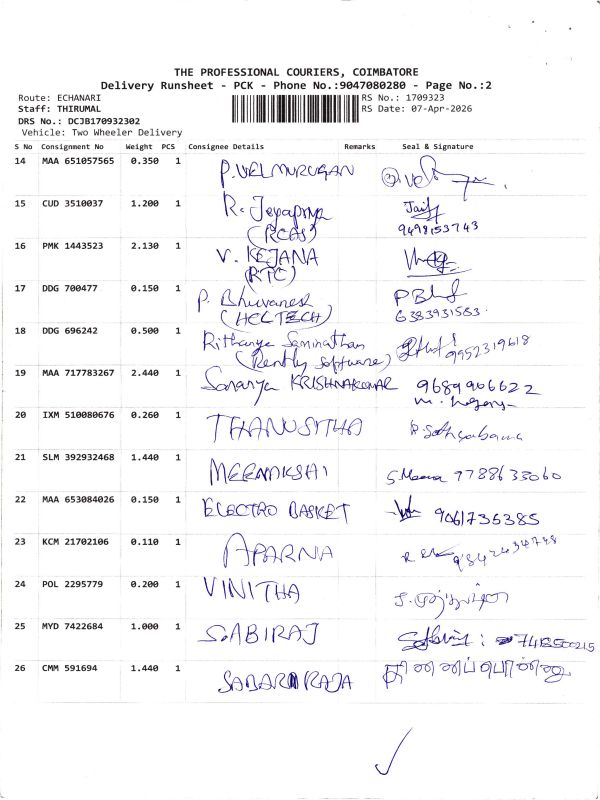 THE PROFESSIONAL COURIERS, COIMBATORE
Delivery Runsheet - PCK - Phone No.:9047080280 - Page No.:2
Route: ECHANARI
RS No.: 1709323
Staff: THIRUMAL
RS Date: 07-Apr-2026
DRS No.: DCJB170932302
Vehicle: Two Wheeler Delivery
S No Consignment No Weight PCS Consignee Details Remarks Seal & Signature
14 MAA 651057565 0.350 1 P.VELMURUGAN
15 CUD 3510037 1.200 1 R. Jeyapriya
(RCAS) 9498153743
16 PMK 1443523 2.130 1 V. KEJANA
(RTC)
17 DDG 700477 0.150 1 P. Bhuvanesh
(HCLTECH) 6383931583
18 DDG 696242 0.500 1 Rithanya Saminathan
(Rently software) 9952319618
19 MAA 717783267 2.440 1 Saranya KRISHNAKUMAR 9689906622
20 IXM 510080676 0.260 1 THANUSITHA
21 SLM 392932468 1.440 1 MEENAKSHI S.Meena 9788633060
22 MAA 653084026 0.150 1 ELECTRO BASKET 9061735385
23 KCM 21702106 0.110 1 APARNA 9842434748
24 POL 2295779 0.200 1 VINITHA
25 MYD 7422684 1.000 1 S.ABIRAJ
26 CMM 591694 1.440 1 SABARI RAJA